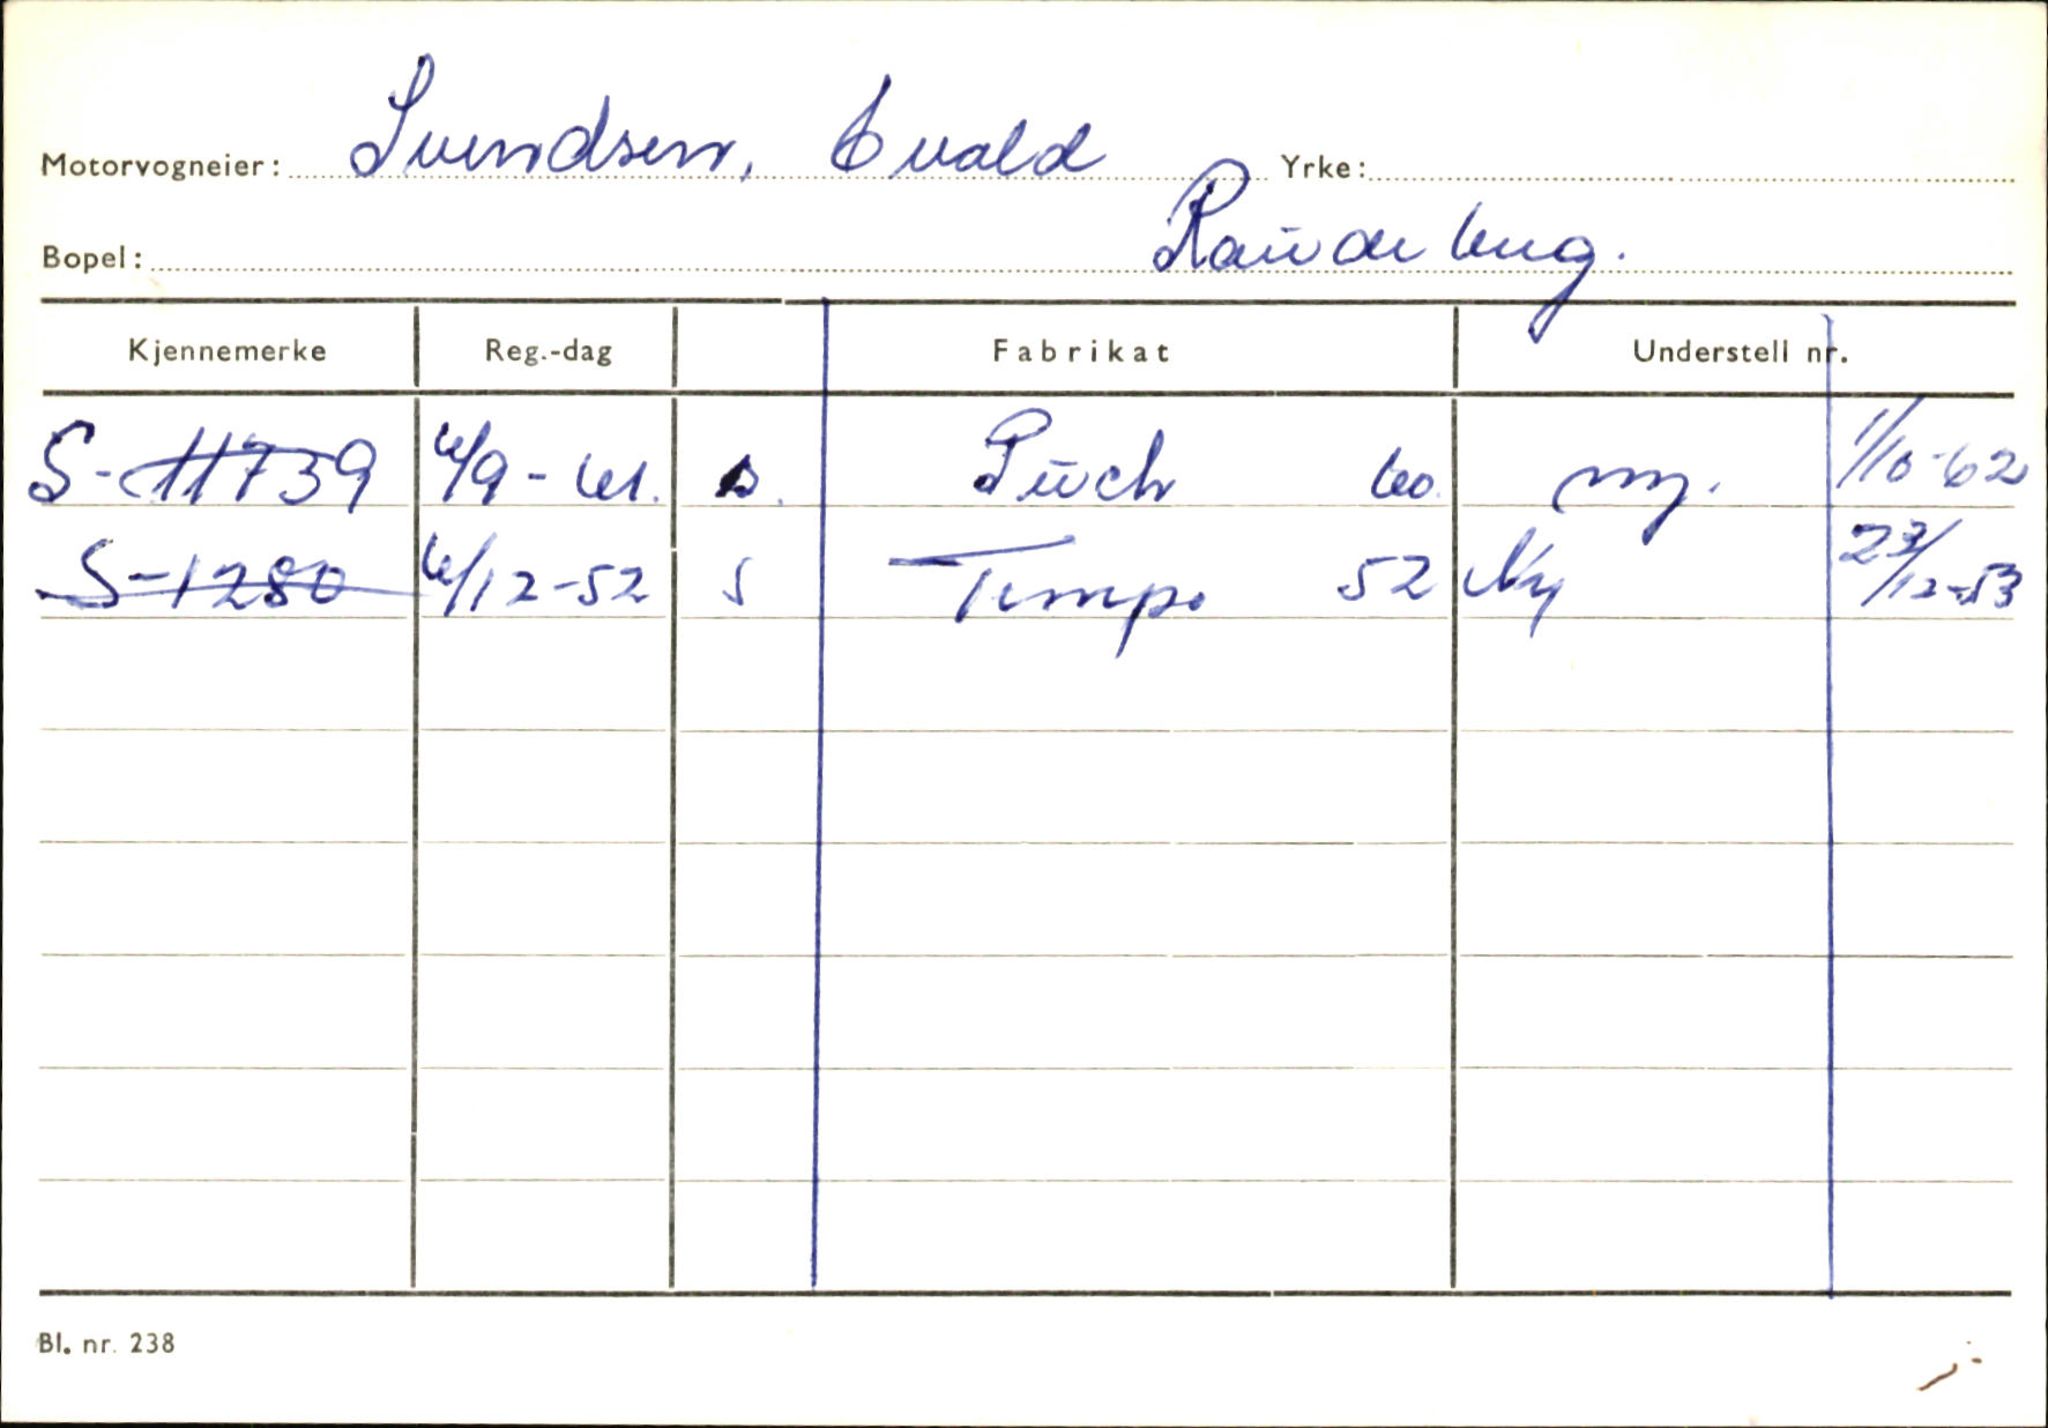 Motorvogneier: Svendsen, Evald Yrke:
Bopel: Raudeberg.
Kjennemerke Reg.-dag Fabrikat Understell nr.
S-11739 6/9-61. s. Puch 60. ny. 1/10-62
S-1280 6/12-52 s Tempo 52 Ny 23/12-53
Bl. nr. 238